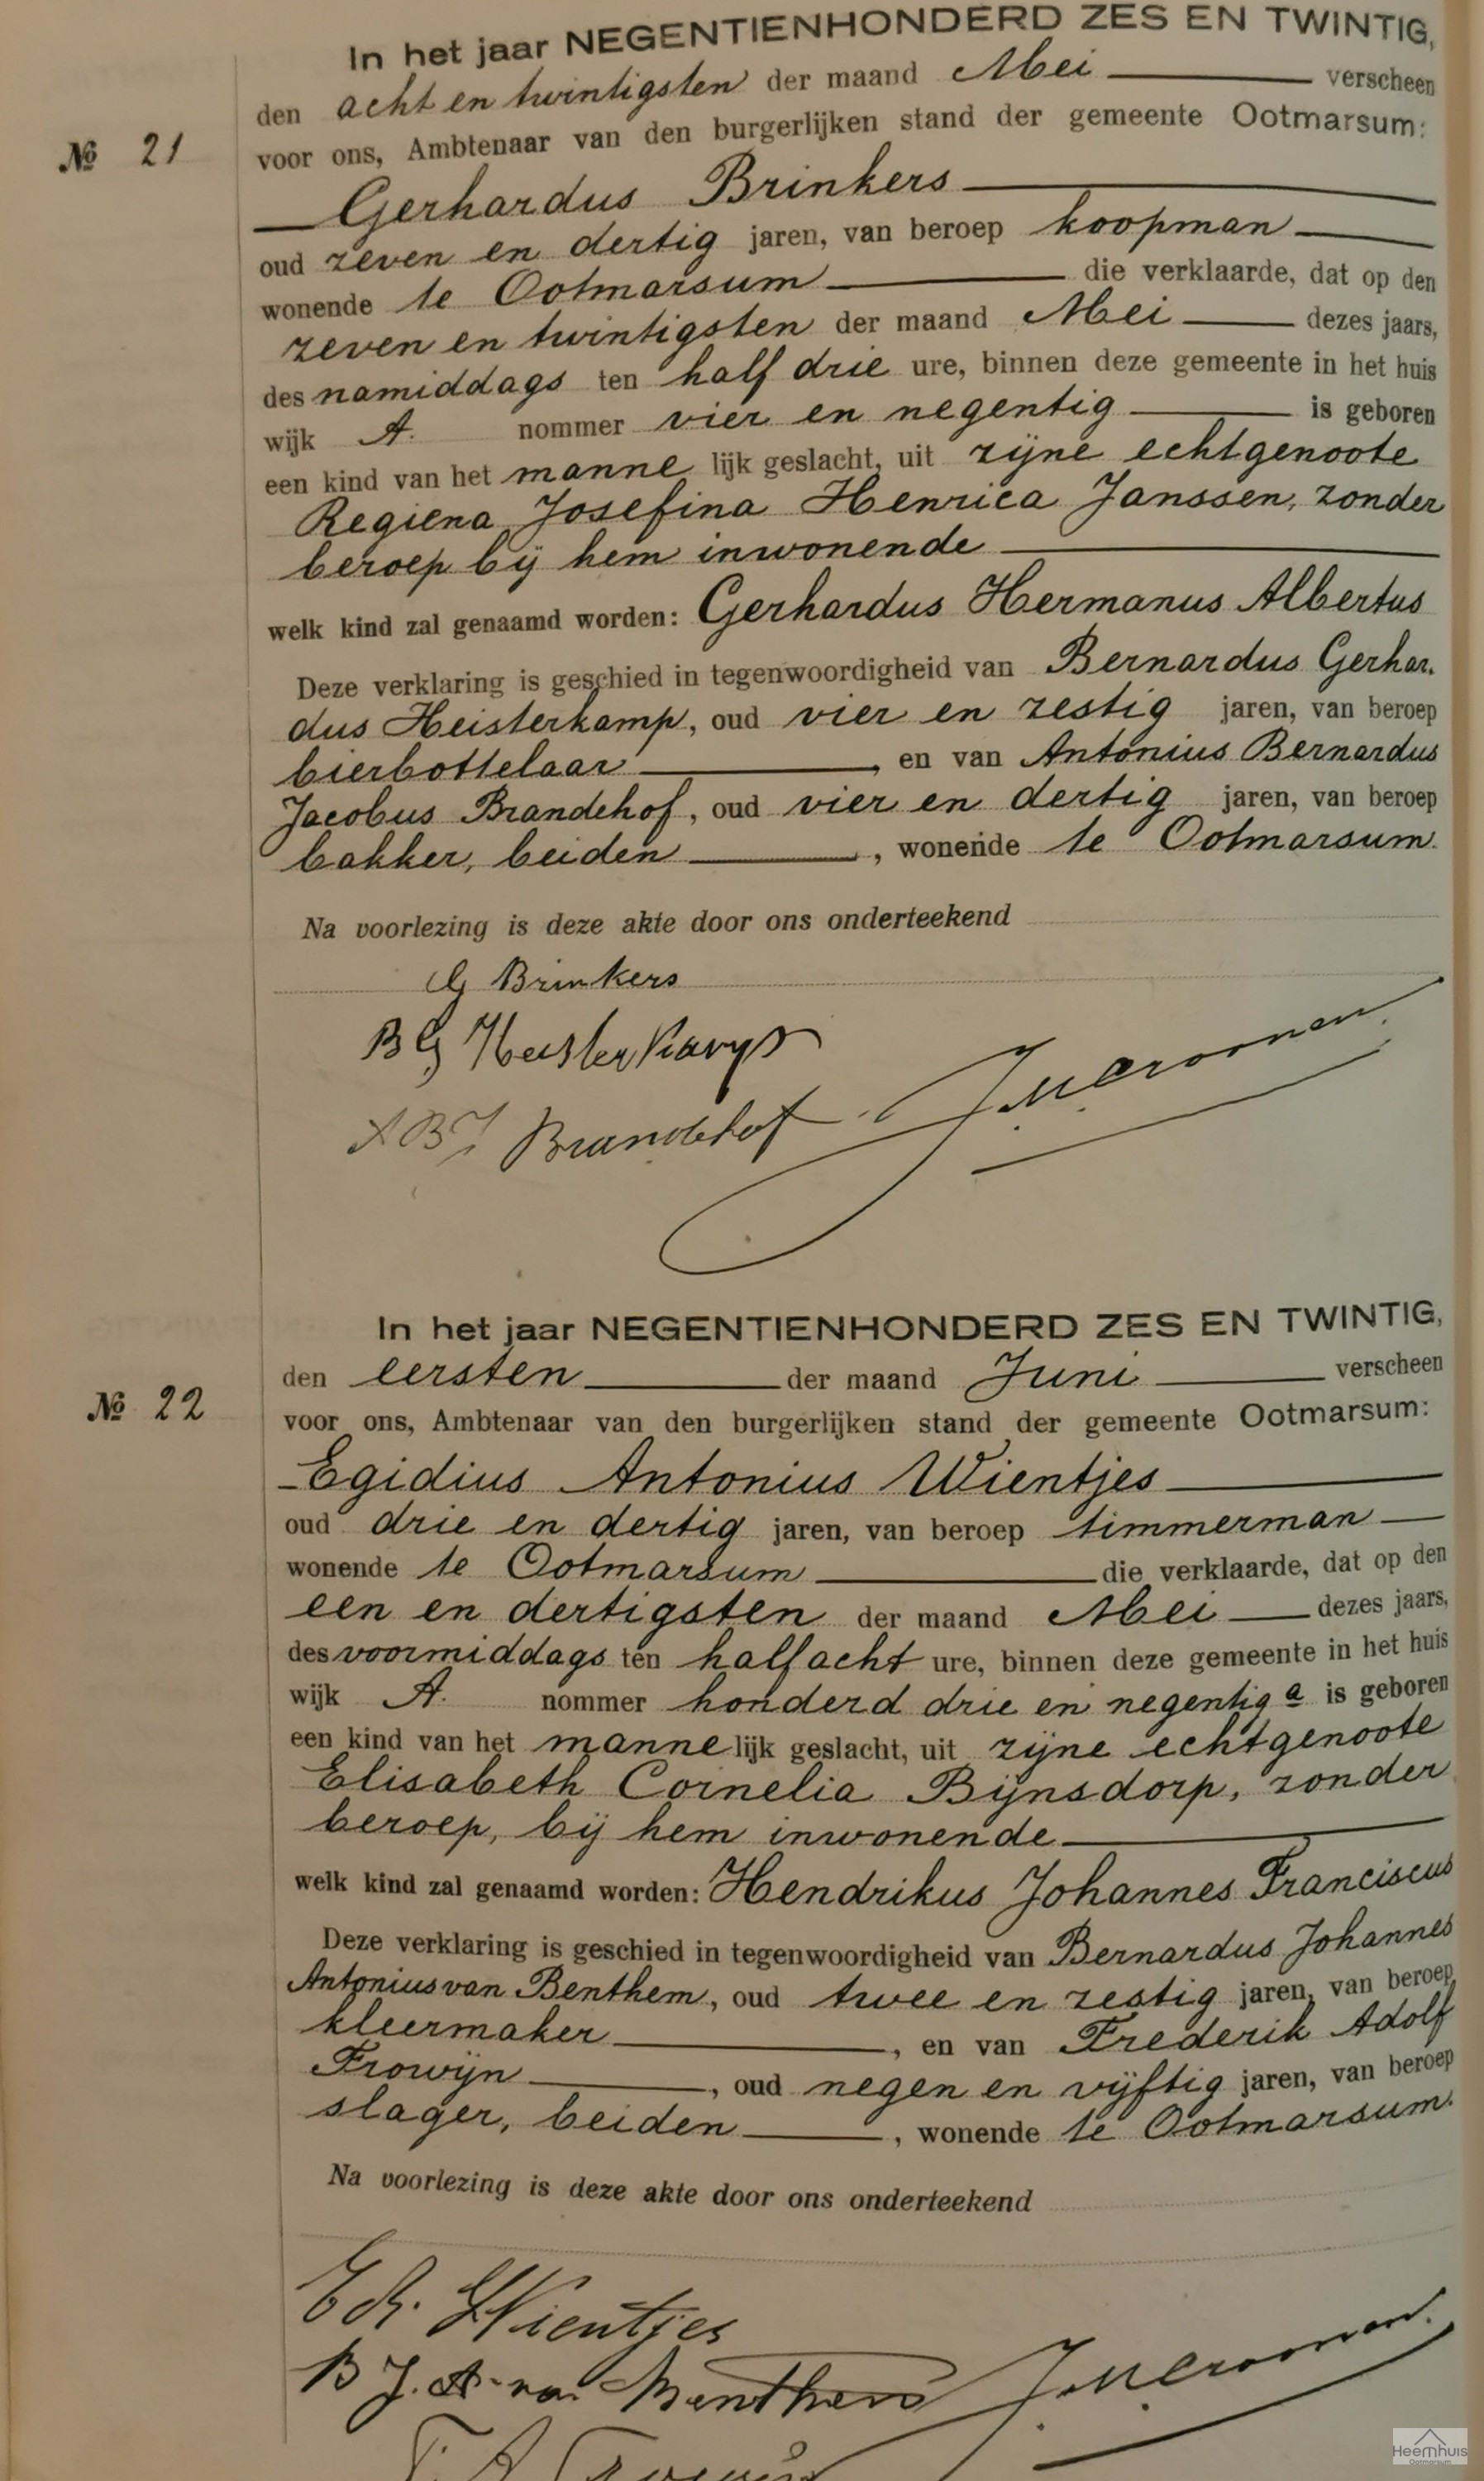 In het jaar NEGENTIENHONDERD ZES EN TWINTIG,
den acht en twintigsten der maand Mei verscheen
№ 21
voor ons, Ambtenaar van den burgerlijken stand der gemeente Ootmarsum:
Gerhardus Brinkers
oud zeven en dertig jaren, van beroep koopman
wonende te Ootmarsum die verklaarde, dat op den
zeven en twintigsten der maand Mei dezes jaars,
des namiddags ten half drie ure, binnen deze gemeente in het huis
wijk A. nommer vier en negentig is geboren
een kind van het mannelijk geslacht, uit zijne echtgenoote
Regiena Josefina Henrica Janssen, zonder
beroep bij hem inwonende
welk kind zal genaamd worden: Gerhardus Hermanus Albertus
Deze verklaring is geschied in tegenwoordigheid van Bernardus Gerhar.
dus Heisterkamp, oud vier en zestig jaren, van beroep
bierbottelaar, en van Antonius Bernardus
Jacobus Brandehof, oud vier en dertig jaren, van beroep
bakker, beiden, wonende te Ootmarsum.
Na voorlezing is deze akte door ons onderteekend
G Brinkers
B G Heisterkamp
A B J Brandehof
In het jaar NEGENTIENHONDERD ZES EN TWINTIG,
den eersten der maand Juni verscheen
№ 22
voor ons, Ambtenaar van den burgerlijken stand der gemeente Ootmarsum:
Egidius Antonius Wientjes
oud drie en dertig jaren, van beroep timmerman
wonende te Ootmarsum die verklaarde, dat op den
een en dertigsten der maand Mei dezes jaars,
des voormiddags ten half acht ure, binnen deze gemeente in het huis
wijk A. nommer honderd drie en negentig a is geboren
een kind van het mannelijk geslacht, uit zijne echtgenoote
Elisabeth Cornelia Bijnsdorp, zonder
beroep, bij hem inwonende
welk kind zal genaamd worden: Hendrikus Johannes Franciscus
Deze verklaring is geschied in tegenwoordigheid van Bernardus Johannes
Antonius van Benthem, oud twee en zestig jaren, van beroep
kleermaker, en van Frederik Adolf
Frowijn, oud negen en vijftig jaren, van beroep
slager, beiden, wonende te Ootmarsum.
Na voorlezing is deze akte door ons onderteekend
Wientjes
B J. A. van Benthem
Heemhuis
Ootmarsum